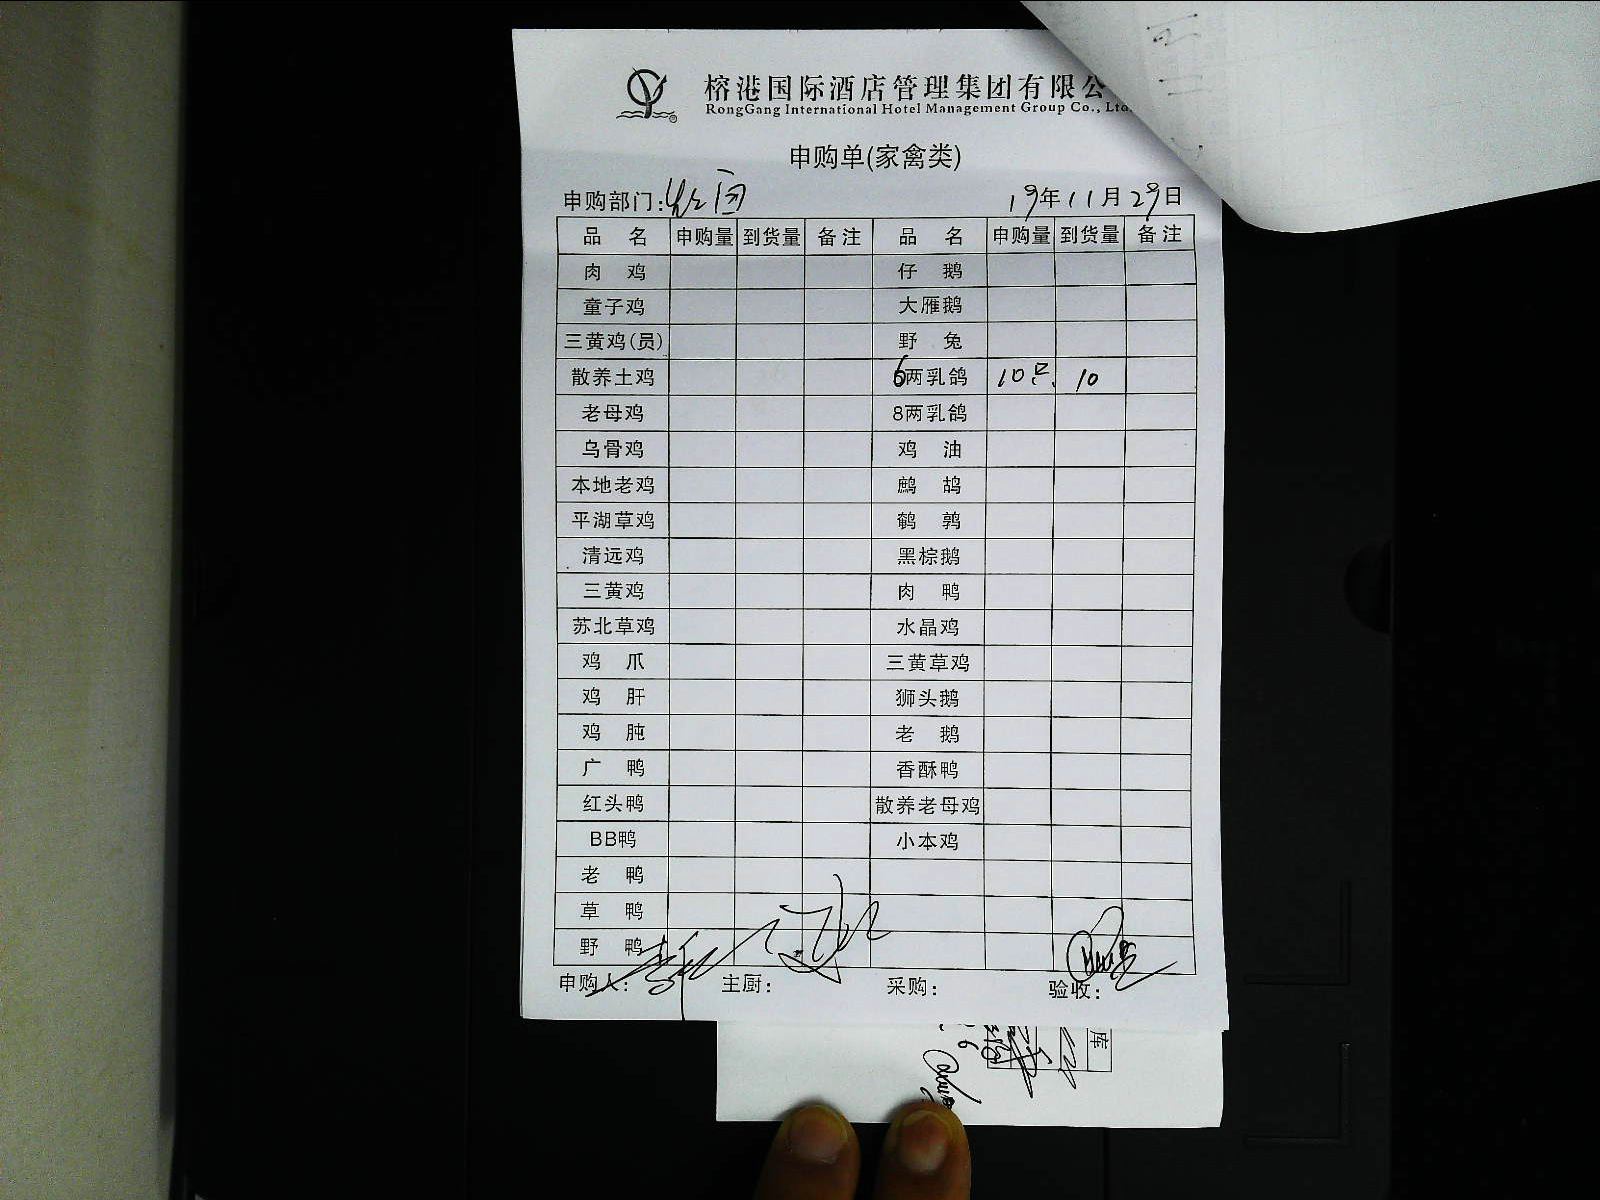 榕港国际酒店管理集团有限公
RongGang International Hotel Management Group Co., Ltd.
申购单(家禽类)
申购部门: 19年11月29日
品 名 申购量 到货量 备注 品 名 申购量 到货量 备注
肉 鸡 仔 鹅
童子鸡 大雁鹅
三黄鸡(员) 野 兔
散养土鸡 6两乳鸽 10只 10
老母鸡 8两乳鸽
乌骨鸡 鸡 油
本地老鸡 鹧 鸪
平湖草鸡 鹌 鹑
清远鸡 黑棕鹅
三黄鸡 肉 鸭
苏北草鸡 水晶鸡
鸡 爪 三黄草鸡
鸡 肝 狮头鹅
鸡 肫 老 鹅
广 鸭 香酥鸭
红头鸭 散养老母鸡
BB鸭 小本鸡
老 鸭
草 鸭
野 鸭
申购人: 主厨: 采购: 验收:
库